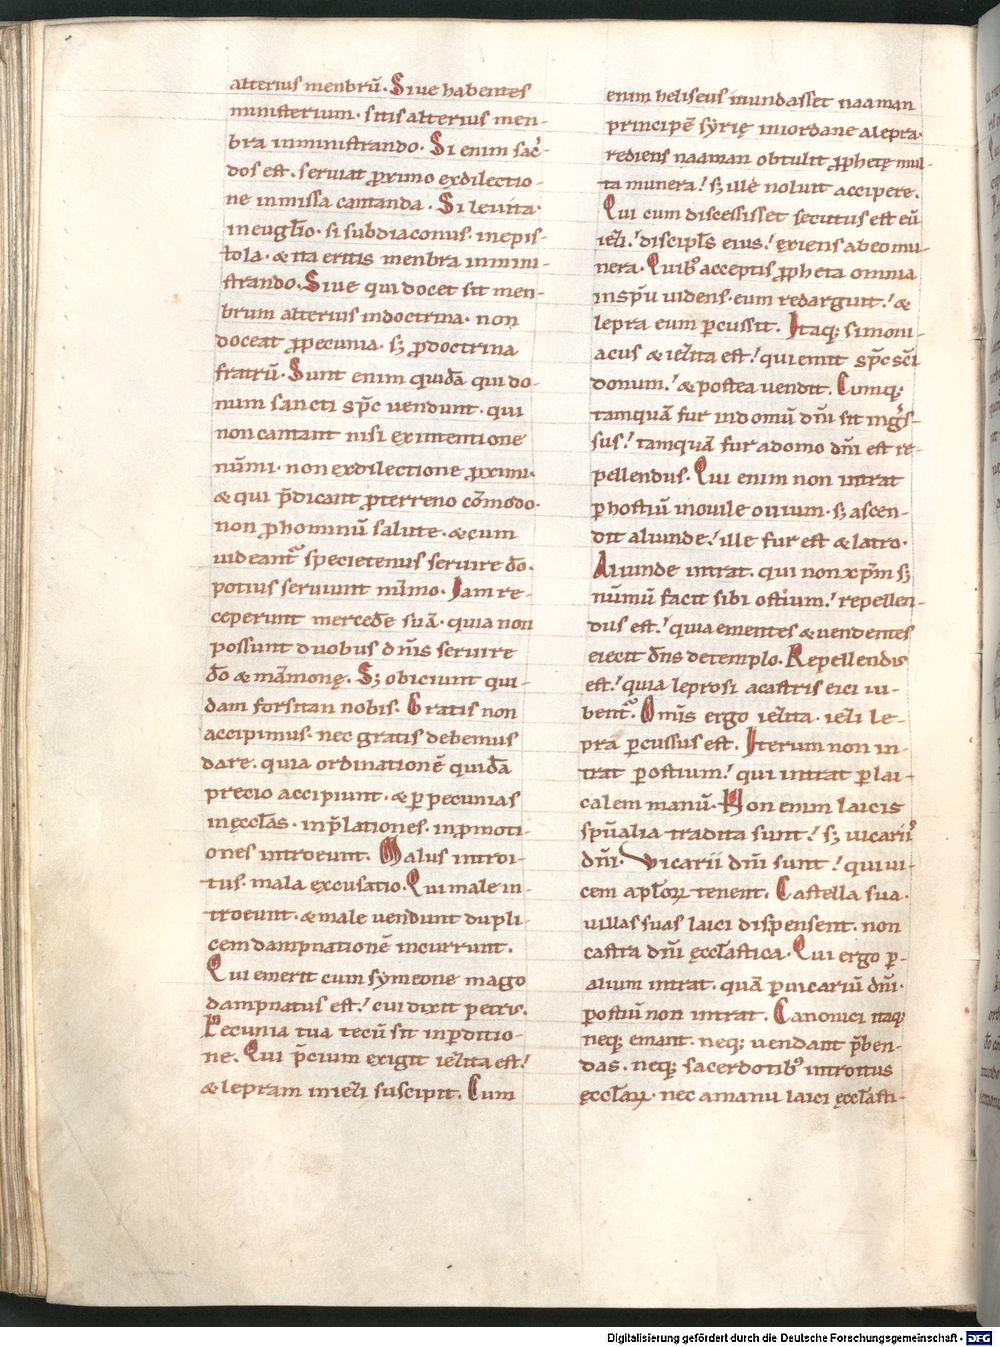 alterius menbrū. Siue habentes
ministerium. sitis alterius men-
bra inministrando. Si enim sac̄-
dos est. seruiat ꝓximo exdilectio-
ne inmissa cantanda. Si leuita.
ineugl̄io. si subdiaconus. inepis-
tola. & ita eritis menbra inmini-
strando. Siue qui docet sit men-
brum alterius indoctrina. non
doceat ꝓpecunia. sꝫ ꝓdoctrina
fratrū. Sunt enim quidā qui do-
num sancti sp̄c uendunt. qui
non cantant nisi exintentione
nūmi. non exdilectione ꝓximi.
& qui p̄dicant ꝓterreno cōmodo.
non ꝓhominū salute. & cum
uideant᷑ specietenus seruire dō.
potius seruiunt nūmo. Iam re-
ceperunt mercedē suā. quia non
possunt duobus dn̄is seruire
dō & mam̄monę. Sꝫ obiciunt qui-
dam forsitan nobis. Gratis non
accipimus. nec gratis debemus
dare. quia ordinationē quidā
precio accipiunt. & ꝑ pecunias
inęccl̄as. inp̄lationes. inꝓmoti-
ones introeunt. Malus introi-
tus. mala excusatio. Qui male in-
troeunt. & male uendunt dupli-
cem dampnationē incurrunt.
Qui emerit cum symeone mago
dampnatus est! cui dixit petrus.
Pecunia tua tecū sit inꝑditio-
ne. Qui p̄cium exigit iez̄ita est!
& lepram iniezi suscipit. Cum
enim heliseus mundasset naaman
principē syrię iniordane alepra.
rediens naaman obtulit ꝓphetę mul-
ta munera! sꝫ ille noluit accipere.
Qui cum discessisset secutus est eū
iezi! discipl̄s eius! exiens abeo mu-
nera. Quibꝰ acceptis ꝓpheta omnia
insp̄u uidens. eum redarguit! &
lepra eum ꝑcussit. Itaqꝫ simoni-
acus & iezita est! qui emit sp̄c sc̄i
donum! & postea uendit. Cumqꝫ
tamquā fur indomū dn̄i sit ingͥs-
sus! tamquā fur adomo dn̄i est re-
pellendus. Qui enim non intrat
ꝑ hostiū inouile ouium. sꝫ ascen-
dit aliunde! ille fur est & latro.
Aliunde intrat. qui non xp̄m sꝫ
nūmū facit sibi ostium! repellen-
dus est! quia ementes & uendentes
eiecit dn̄s detemplo. Repellendus
est! quia leprosi acastris eici iu-
bent᷑. Om̄is ergo iezita. iezi le-
pra ꝑcussus est. Iterum non in-
trat ꝑostium! qui intrat ꝑ lai-
calem manū. Non enim laicis
sp̄ualia tradita sunt! sꝫ uicariiꝰ
dn̄i. Vicarii dn̄i sunt! qui ui-
cem apl̄oꝝ tenent. Castella sua.
uillas suas laici dispensent. non
castra dn̄i ęccl̄astica. Qui ergo ꝑ-
alium intrat. quā ꝑuicariū dn̄i.
ꝑostiū non intrat. Canonici itaqꝫ
neqꝫ emant. neqꝫ uendant p̄ben-
das. neqꝫ sacerdotibꝰ introitus
ęccl̄aꝝ. nec amanu laici ęccl̄asti-
Digitalisierung gefördert durch die Deutsche Forschungsgemeinschaft - DFG